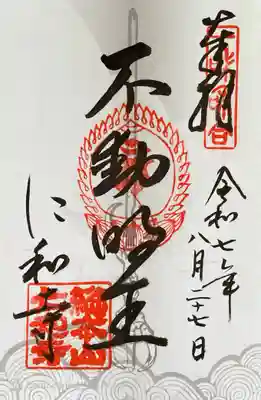 奉拝
令和七年
八月二十七日
不動明王
仁和寺